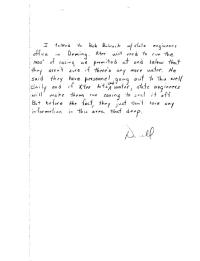 I talked to Bob Bulock w/state engineers
office in Deming. Xtro will need to run the
1000' of casing we permitted at and below that
they aren't sure if there's any more water. He
said they have personnel going out to this well
daily and if Xtro hits water, state engineers
will make them run casing to seal it off.
But before the fact, they just don't have any
information in this area that deep.